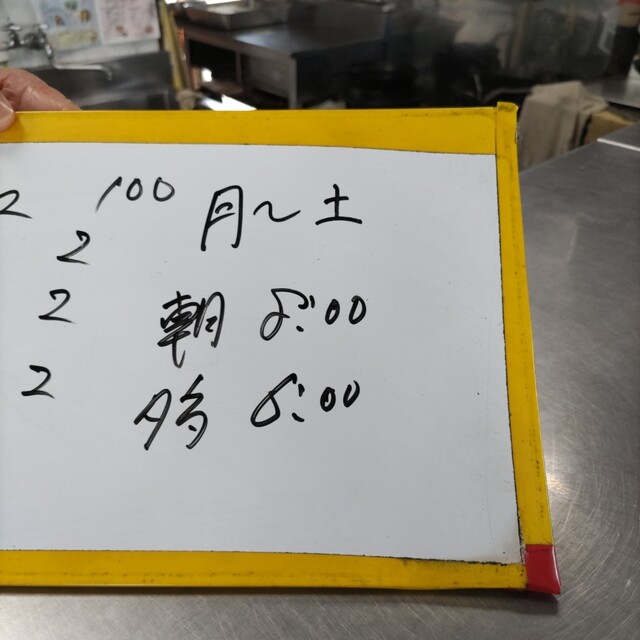 2 100 月〜土
2
2 朝 8:00
2 夕方 6:00